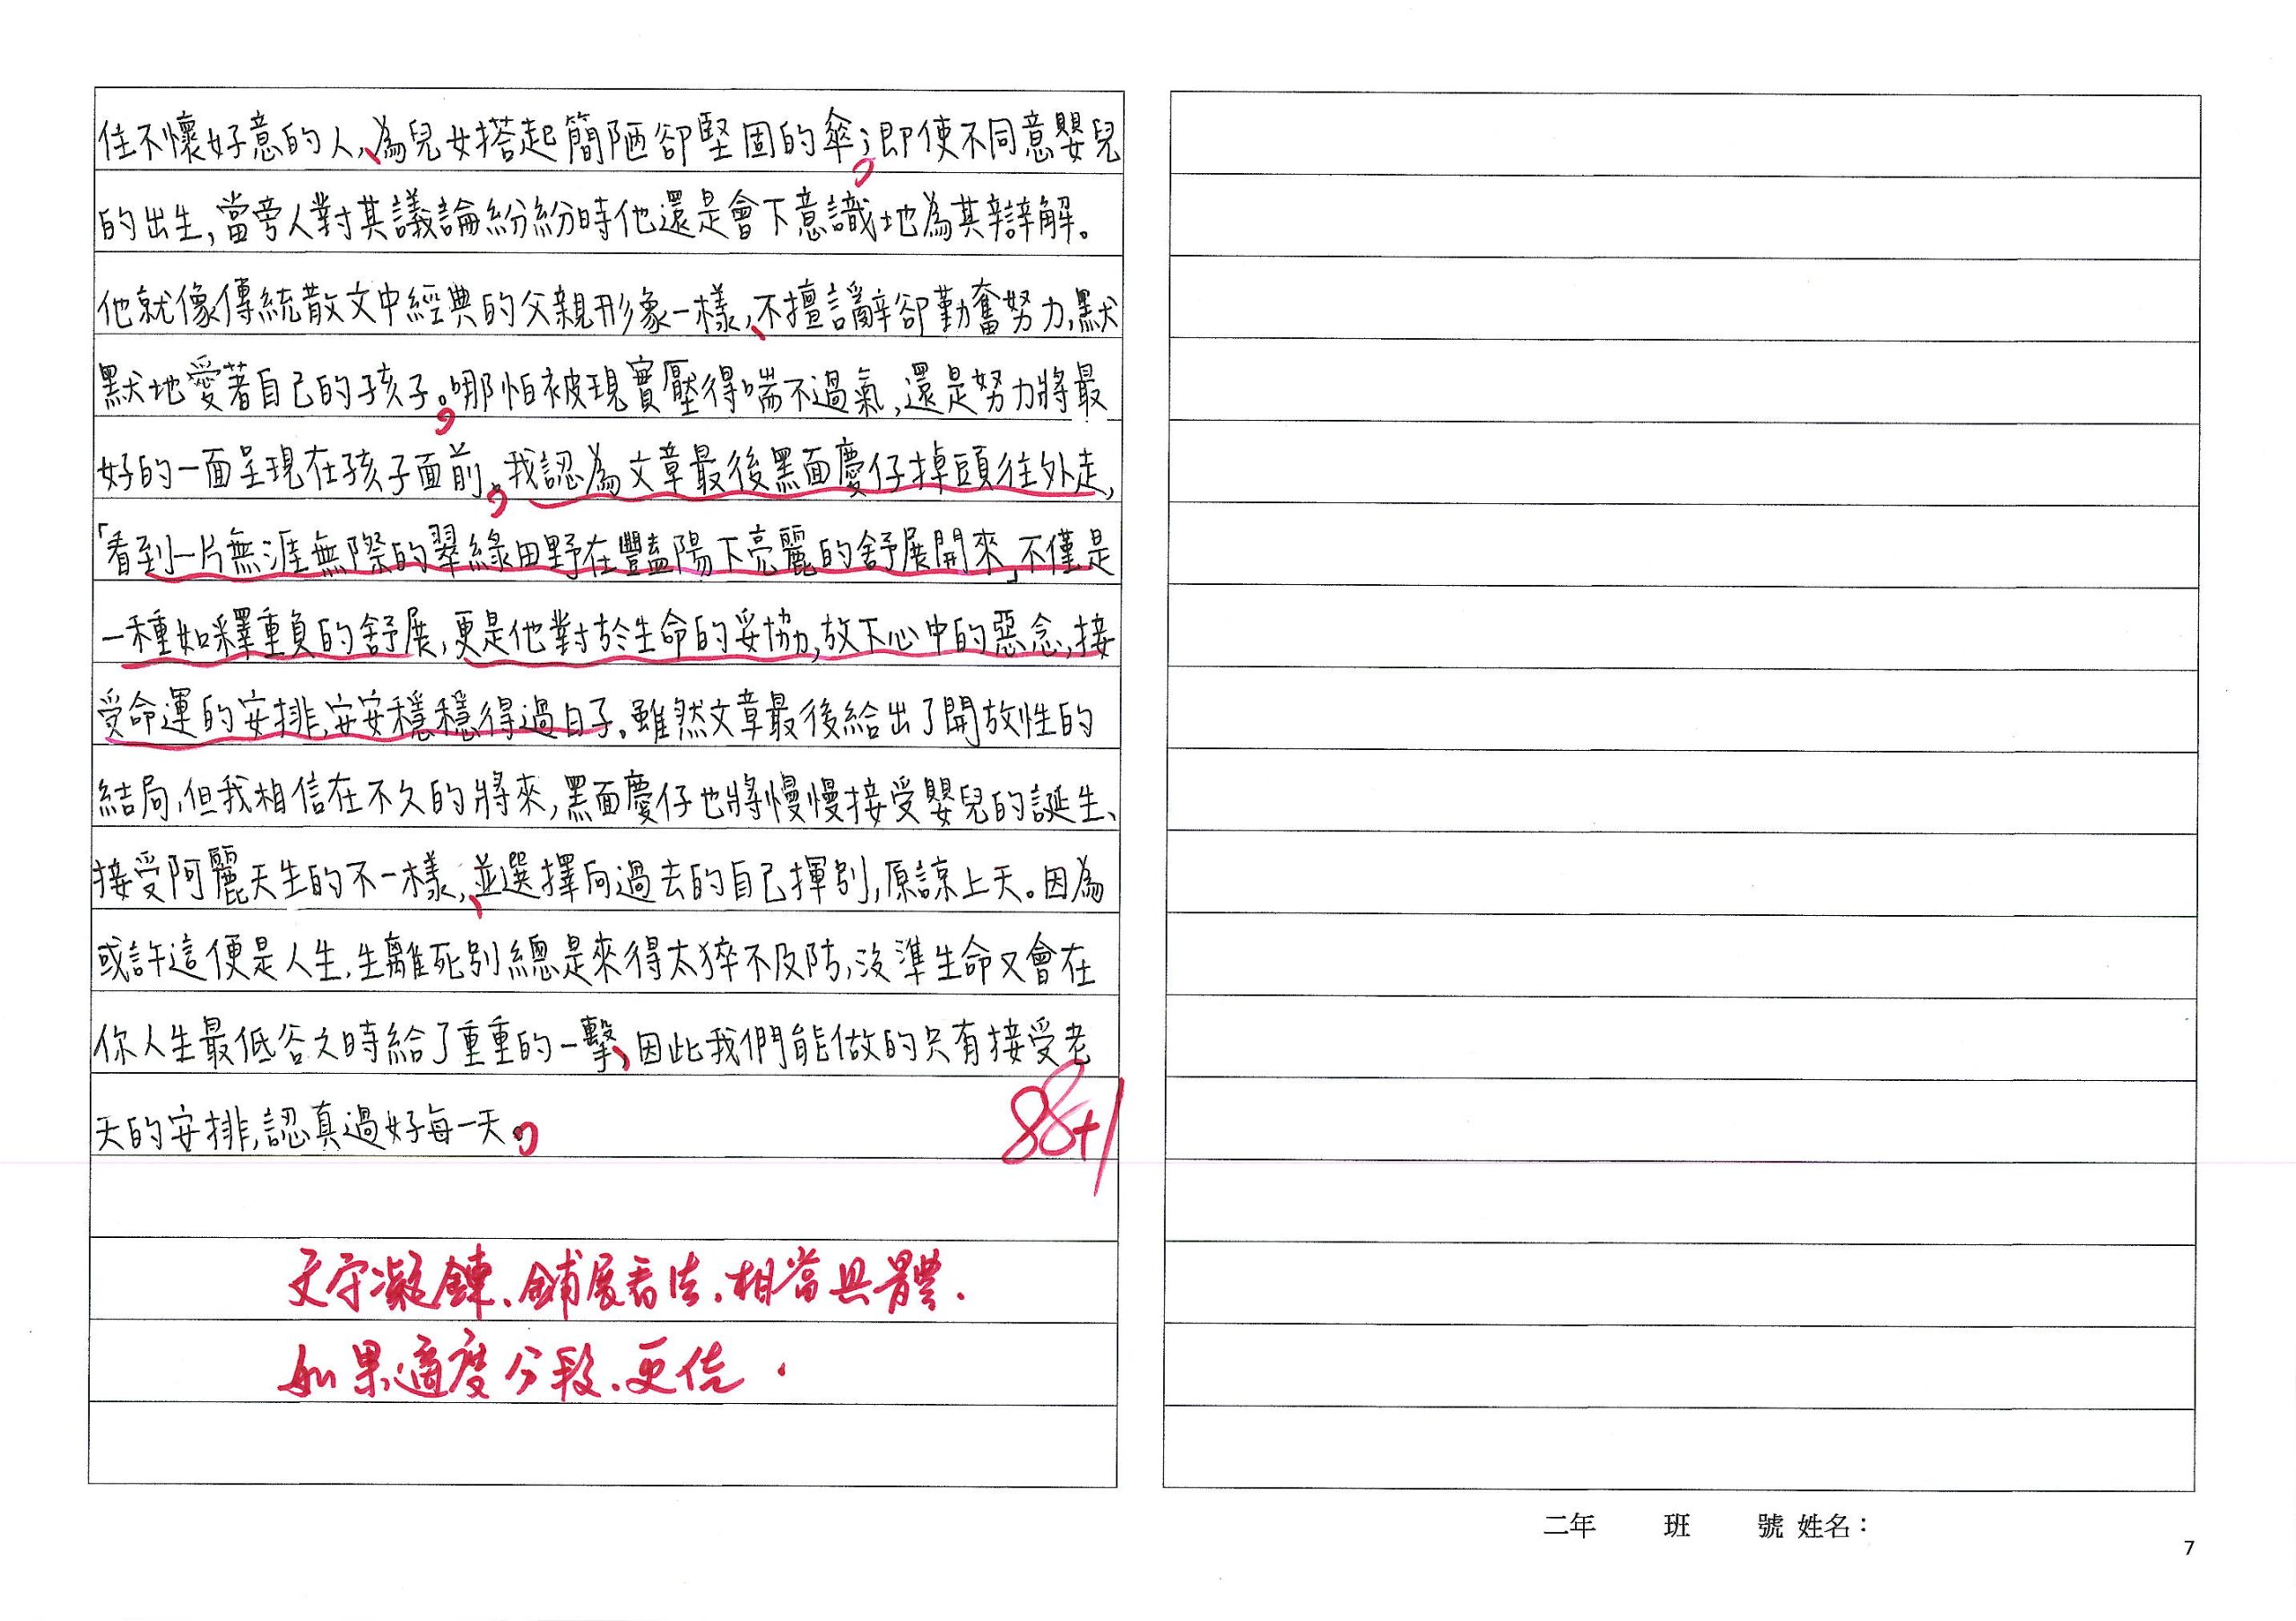 住不懷好意的人、為兒女搭起簡陋卻堅固的傘；即使不同意嬰兒
的出生，當旁人對其議論紛紛時他還是會下意識地為其辯解。
他就像傳統散文中經典的父親形象一樣，不擅言辭卻勤奮努力，默
默地愛著自己的孩子。哪怕被現實壓得喘不過氣，還是努力將最
好的一面呈現在孩子面前。我認為文章最後黑面慶仔掉頭往外走，
「看到一片無涯無際的翠綠田野在豔陽下亮麗的舒展開來」不僅是
一種如釋重負的舒展，更是他對於生命的妥協，放下心中的惡念，接
受命運的安排，安安穩穩得過日子。雖然文章最後給出了開放性的
結局，但我相信在不久的將來，黑面慶仔也將慢慢接受嬰兒的誕生、
接受阿麗天生的不一樣，並選擇向過去的自己揮別，原諒上天。因為
或許這便是人生，生離死別總是來得太猝不及防，沒準生命又會在
你人生最低谷之時給了重重的一擊，因此我們能做的只有接受老
天的安排，認真過好每一天。
88+1
文字凝鍊、鋪展看法，相當具體．
如果適度分段，更佳．
二年 班 號 姓名：
7